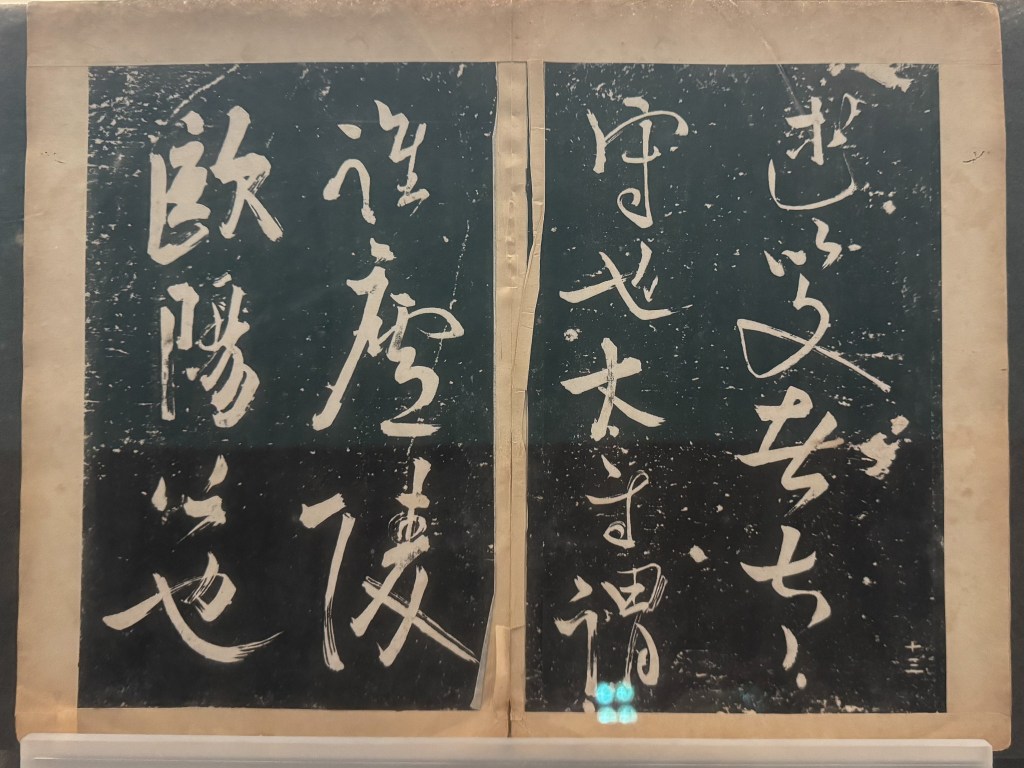 述以文者太
十三
守也太守謂
誰廬陵
歐陽公也